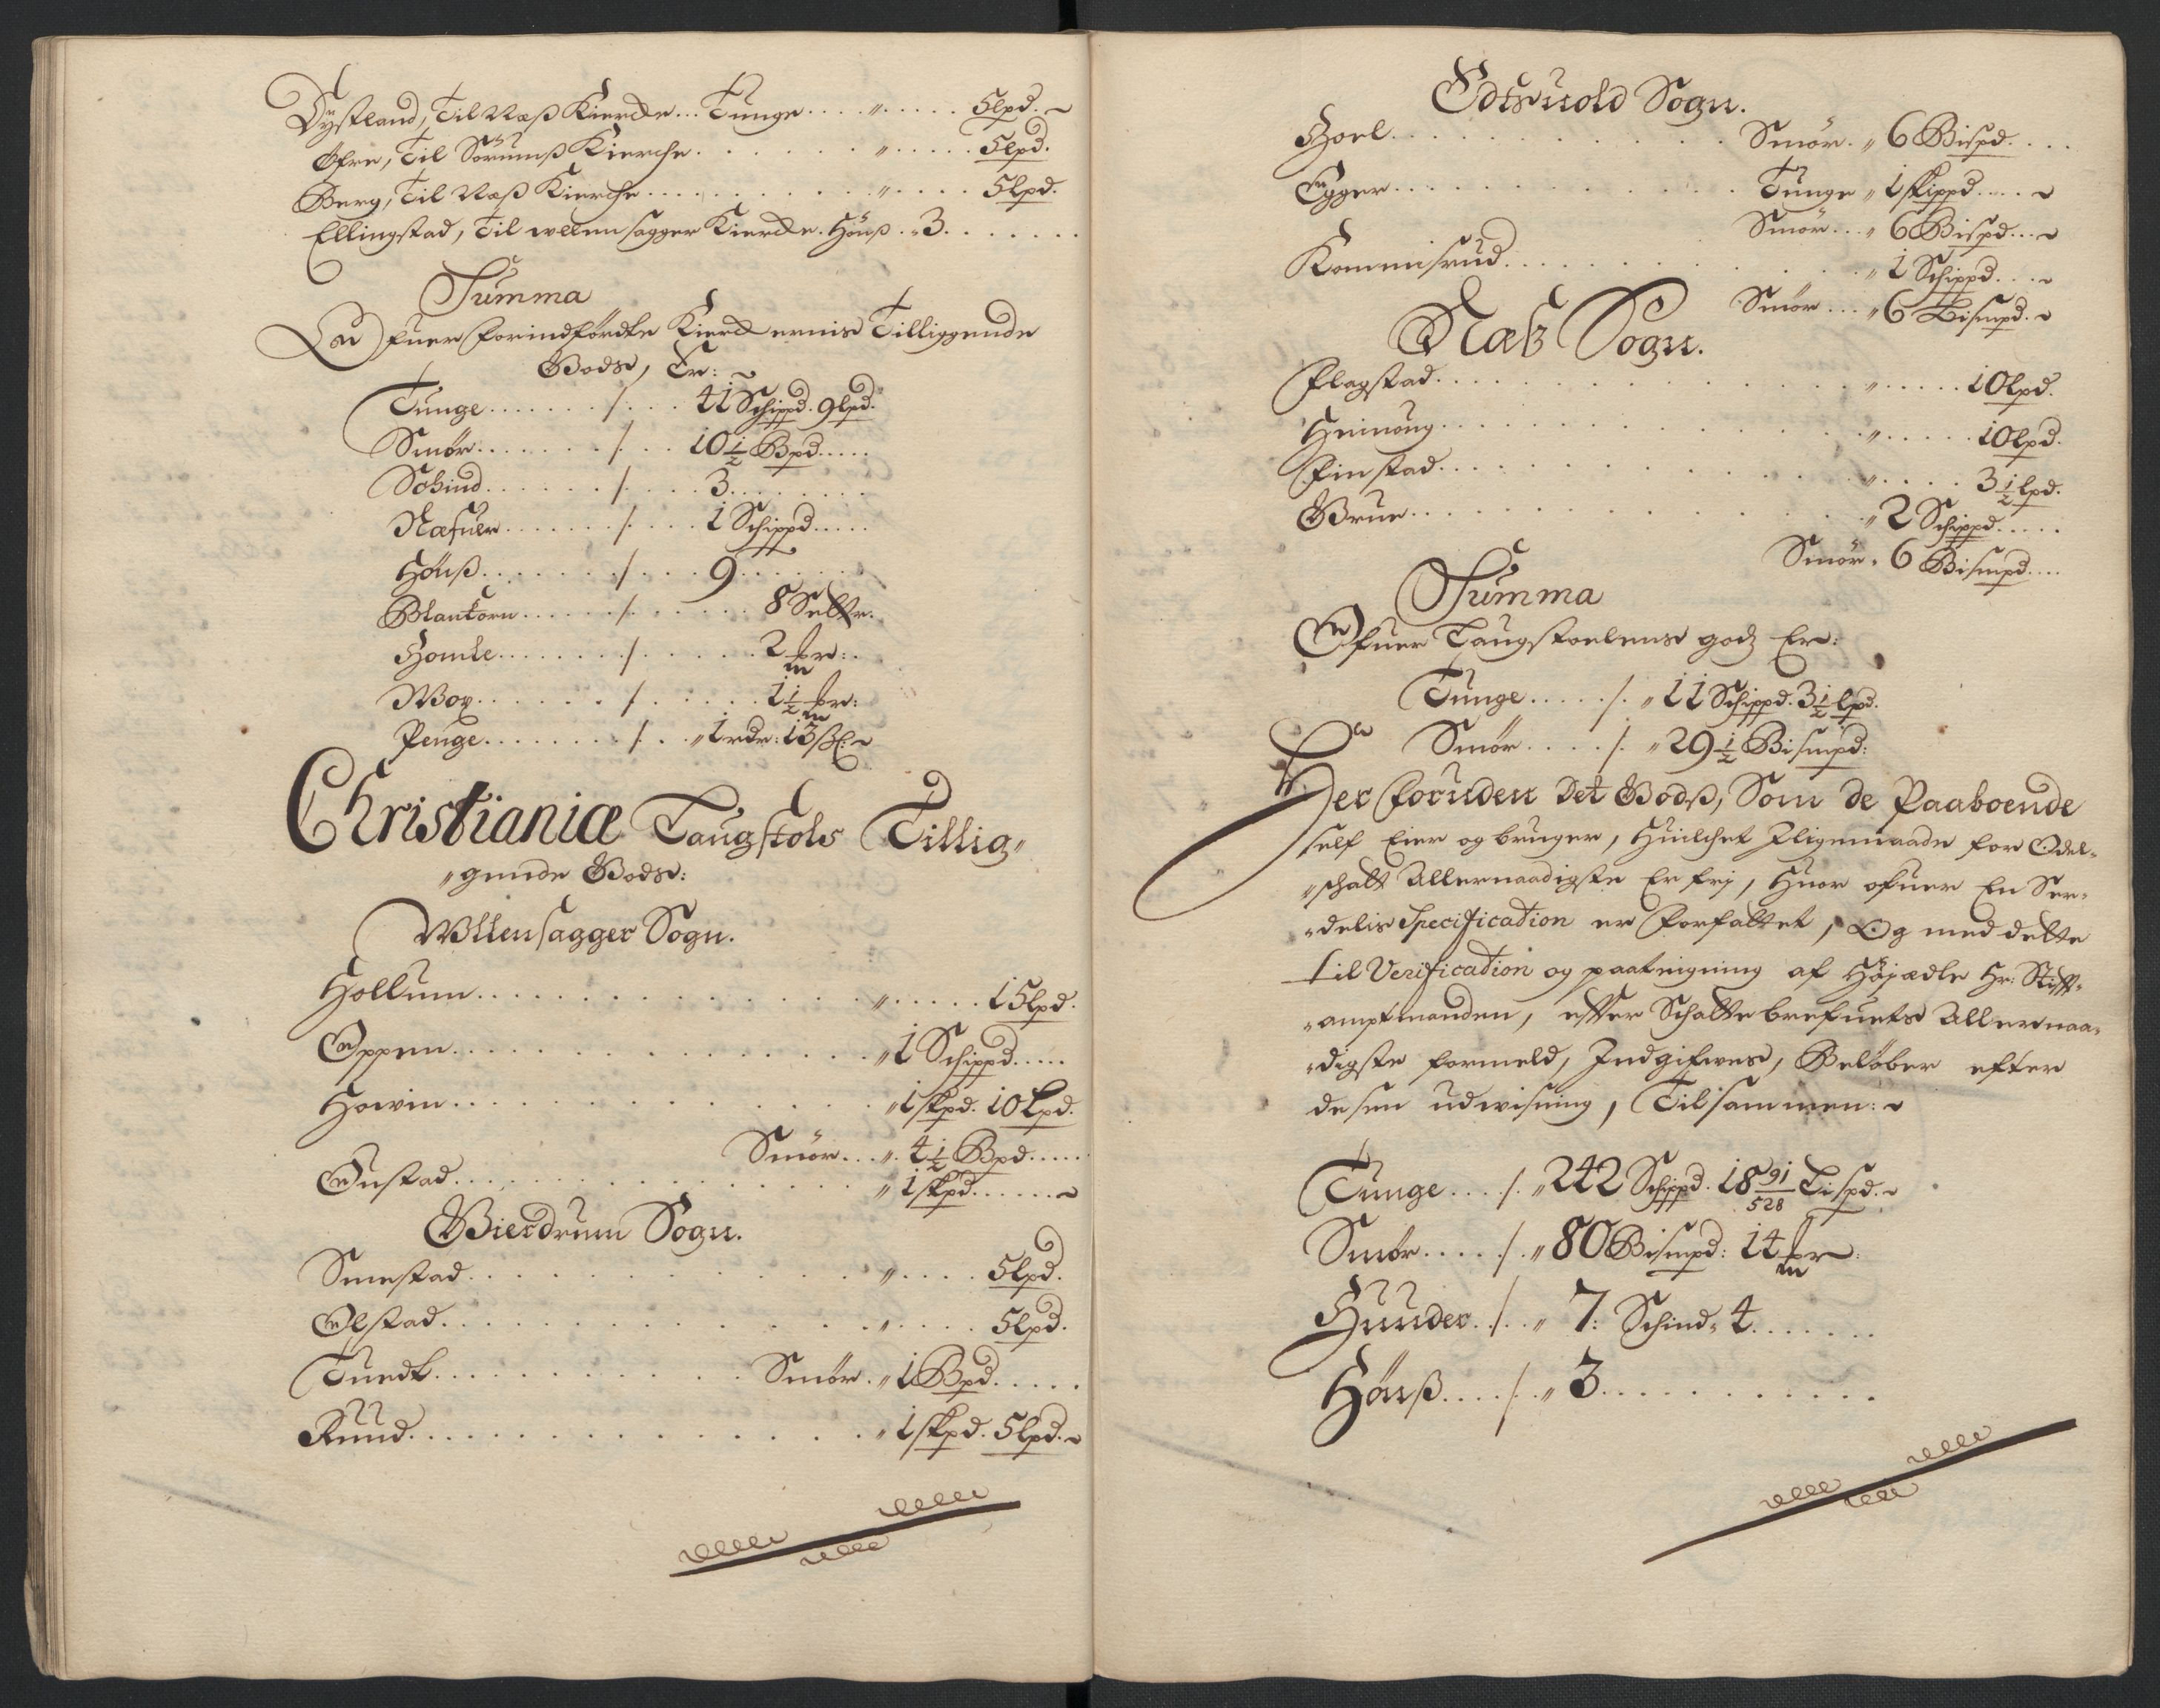 Øystland, Til Næss Kiercke... Tunge .... „ ..... 5 lpd. ~
Ofre, Til Sörumss Kierche . . . . . . „ ..... 5 lpd.
Berg, Til Næss Kierche . . . . . . . „ .... 5 lpd.
Ellingstad, Til wllensagger Kiercke. Höuss . „ 3 . . . . . . .
Summa
Ofuer forindfördte Kierckernis Tilliggende
Gods, Er:
Tunge . . . . . . /. . . 41 Schippd. 9 lpd.
Smör . . . . . . . /. . . 10 1/2 Bpd. . . . .
Schind . . . . . . /. . . . 3 . . . . . . . .
Næfuer . . . . . . . /. . . . 1 Schippd. . . . .
Höuss . . . . . . . . /. . . . 9 . . . . . . .
Blankorn . . . . . . /. . . . . . 8 Settr.
Homle . . . . . . . . /. . . . . . 2 mr: .
Wox . . . . . . . . /. . . . . . 1 1/2 mr:
Penge . . . . . . . . /. . „ 1 rdr: 13 ß: ~
Christianiæ Laugstols Tillig„
„gende Gods:
Wllensagger Sogn.
Hollum . . . . . . . . . . . . „ . . . . . 15 lpd.
Oppen . . . . . . . . . . . . „ 1 Schippd. . . . .
Howin . . . . . . . . . . . . „ 1 skpd. 10 Lpd.
Smör . . . „ 4 1/2 Bpd. . . . .
Onstad . . . . . . . . . . . . „ 1 skpd. . . . . . ~
Gierdrum Sogn.
Smestad . . . . . . . . . . . . „ . . . . 5 lpd.
Ølstad . . . . . . . . . . . . „ . . . . 5 lpd.
Tuedt . . . . . . . . . . . Smör . „ 1 Bpd. . . . .
Ruud . . . . . . . . . . . . „ 1 skpd. 5 lpd. ~
Edtsuold Sogn.
Hoel . . . . . . . . . . . Smör . „ 6 Bispd. . . .
Egger . . . . . . . . . . . Tunge „ 1 skippd. . . . ~
Smör . . . „ 6 Bispd. . . ~
Kommisrud . . . . . . . . . . „ 1 Schippd. . . . ~
Smör . . . „ 6 Bismpd. ~
Næss Sogn.
Flagstad . . . . . . . . . . . . „ . . . . . 10 lpd.
Heimoug . . . . . . . . . . . . „ . . . . . 10 lpd.
Finstad . . . . . . . . . . . . „ . . . . . 3 1/2 lpd.
Brue . . . . . . . . . . . . „ 2 Schippd. . . . .
Smör „ 6 Bismpd. . . .
Summa
Ofuer Laugstoelens gods Er:
Tunge . . . . . /. „ 11 Schippd. 3 1/2 lpd.
Smör . . . . /. „ 29 1/2 Bismpd:
Der foruden Det Godss, Som de Paaboende
self Eier og bruger, Huilchet Iligemaade for Odel„
„schatt Allernaadigste Er fri, Huor ofuer En Ser„
„delis Specification er forfattet, Og med dette
til Verification og paateigning af Höjædle Hr: Stifft„
„amptmanden, efter Schattebrefuets Allernaa„
„digste formeld, Indgifues, Belöber efter
desen udwisning, Tilsammen: ~
Tunge . . . /. „ 242 Schippd. 18 91/528 Lispd. ~
Smör . . . . /. „ 80 Bismpd: 14 mr:
Huuder . /. . „ 7: Schind „ 4 . . . . . . .
Höuss . . . . /. . „ 3 . . . . . . . . . . .